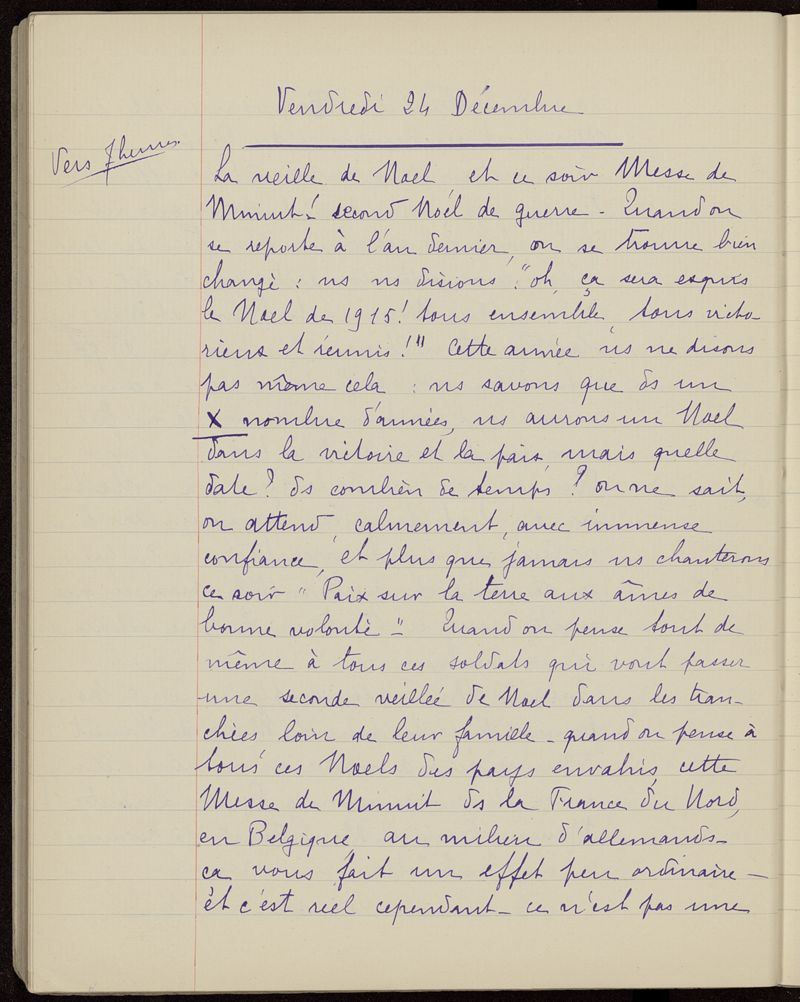 Vendredi 24 Décembre
Vers 7 heures
La vieille de Noel et ce soir Messe de
Minuit! second Noël de guerre - Quand on
se reporte à l'an dernier, on se trouve bien
changé : ns ns disions : "oh, ça sera exquis
le Noel de 1915! tous ensemble, tous victo-
rieux et réunis!" Cette année ns ne disons
pas même cela : ns savons que ds un
X nombre d'années, ns aurons un Noel
dans la victoire et la paix, mais quelle
date? ds combien de temps? on ne sait,
on attend, calmement, avec immense
confiance, et plus que jamais ns chanterons
ce soir "Paix sur la terre aux âmes de
bonne volonté" - Quand on pense tout de
même à tous ces soldats qui vont passer
une seconde veilleé de Noel dans les tran-
chées loin de leur famille - quand on pense à
tous ces Noels des pays envahis, cette
Messe de Minuit ds la France du Nord,
en Belgique, au milieu d'allemands -
ça vous fait un effet peu ordinaire -
et c'est réel cependant - ce n'est pas une